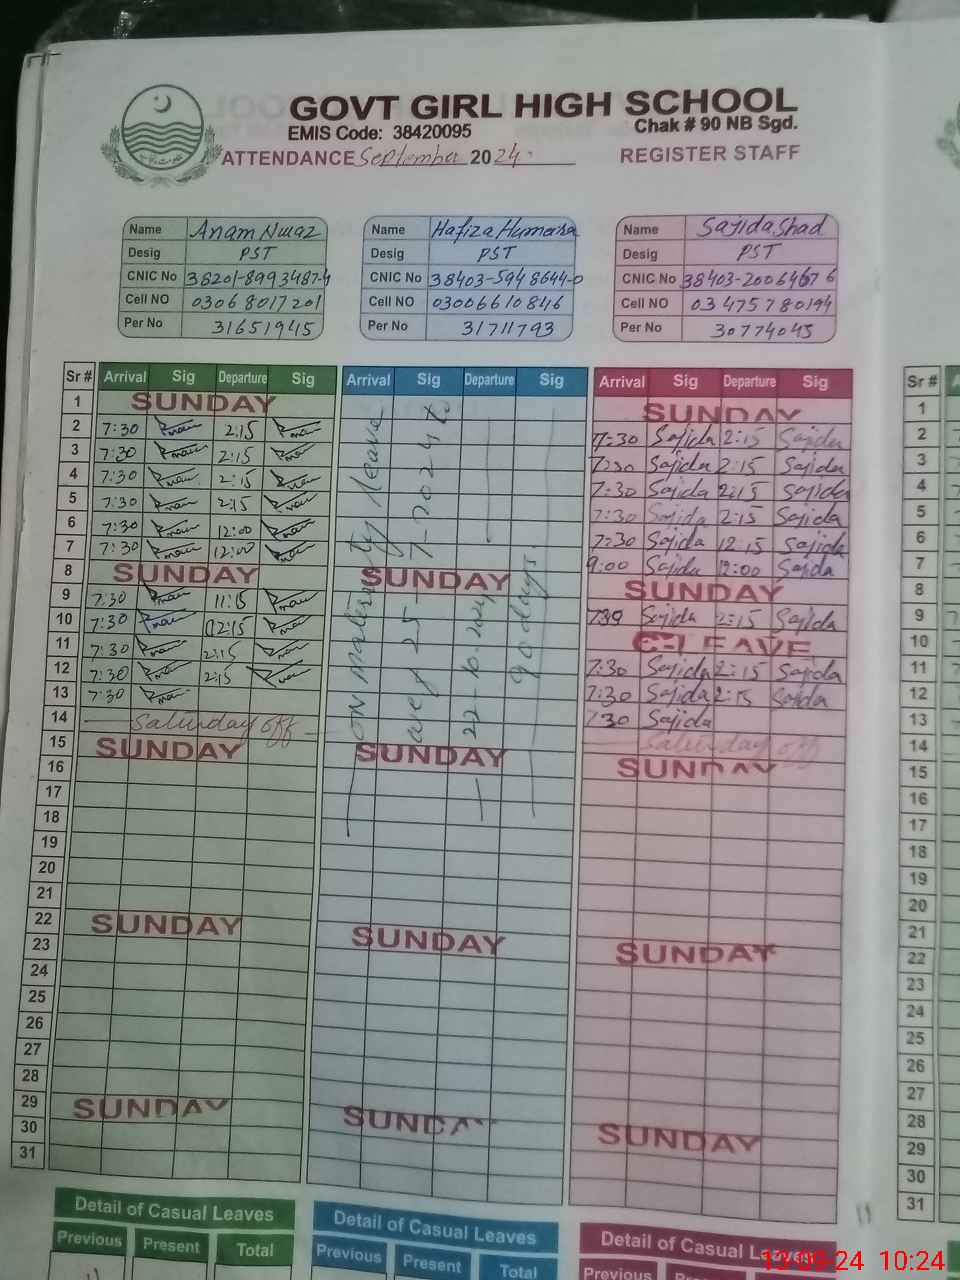 GOVT GIRL HIGH SCHOOL
EMIS Code: 38420095 Chak # 90 NB Sgd.
ATTENDANCE September 2024 REGISTER STAFF
Name Anam Nwaz Name Hafiza Humaira Name Sajida Shad
Desig PST Desig PST Desig PST
CNIC No 38201-8993487-4 CNIC No 38403-5948644-0 CNIC No 38403-2006467 6
Cell NO 03068017201 Cell NO 03006610846 Cell NO 03475780194
Per No 31651945 Per No 31711793 Per No 30774045
Sr # Arrival Sig Departure Sig Arrival Sig Departure Sig Arrival Sig Departure Sig Sr #
1 SUNDAY SUNDAY 1
2 7:30 2:15 7:30 Sajida 2:15 Sajida 2
3 7:30 2:15 7:30 Sajida 2:15 Sajida 3
4 7:30 2:15 7:30 Sajida 2:15 Sajida 4
5 7:30 2:15 7:30 Sajida 2:15 Sajida 5
6 7:30 12:00 7:30 Sajida 12:15 Sajida 6
7 7:30 12:00 9:00 Sajida 12:00 Sajida 7
8 SUNDAY SUNDAY SUNDAY 8
9 7:30 11:15 730 Sajida 2:15 Sajida 9
10 7:30 2:15 C-LEAVE 10
11 7:30 2:15 7:30 Sajida 2:15 Sajida 11
12 7:30 2:15 7:30 Sajida 2:15 Sajida 12
13 7:30 7:30 Sajida 13
14 Saturday off Saturday off 14
15 SUNDAY SUNDAY SUNDAY 15
ON maternity leave
25-7-2024 to
22-10-2024
90 days
16 16
17 17
18 18
19 19
20 20
21 21
22 SUNDAY SUNDAY SUNDAY 22
23 23
24 24
25 25
26 26
27 27
28 28
29 SUNDAY SUNDAY SUNDAY 29
30 30
31 31
Detail of Casual Leaves Detail of Casual Leaves Detail of Casual Leaves
Previous Present Total Previous Present Total Previous
13-09-24 10:24